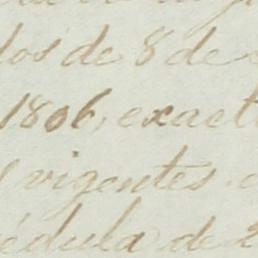 dos de 8 de
1806, exact
vigentes
édula de 2